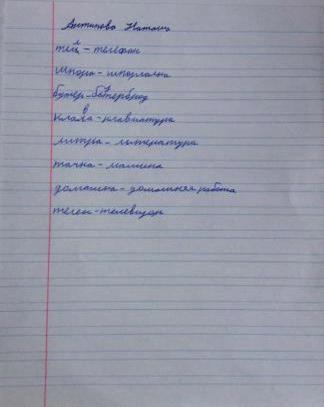 Антипова Наташа
тел - телефон
шпора - шпоргалка
бутер - бутерброд
клава - клавиатура
литра - литература
тачка - машина
домашка - домашняя работа
телек - телевизор